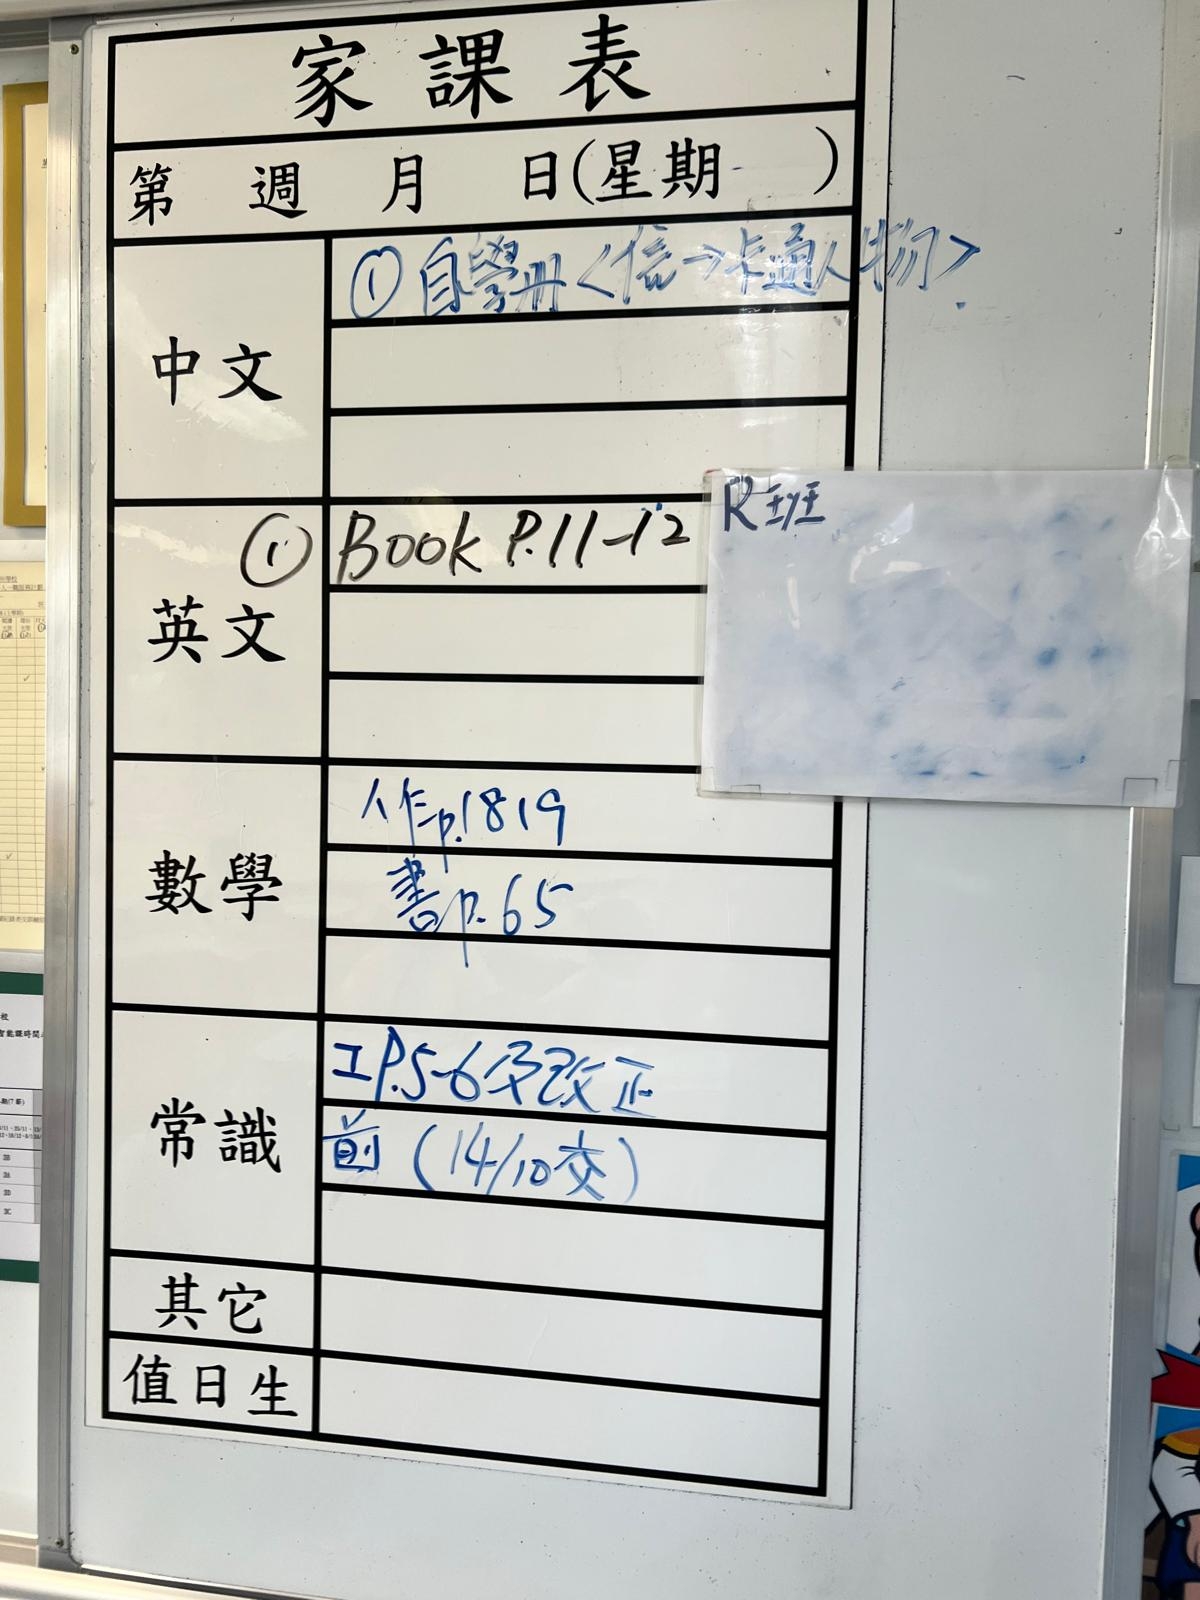 家課表
第 週 月 日(星期 )
中文
① 自學冊<信→卡通人物>
英文
① Book P.11-12
R班
數學
作p.1819
書p.65
常識
工P.5-6及改正
前(14/10交)
其它
值日生